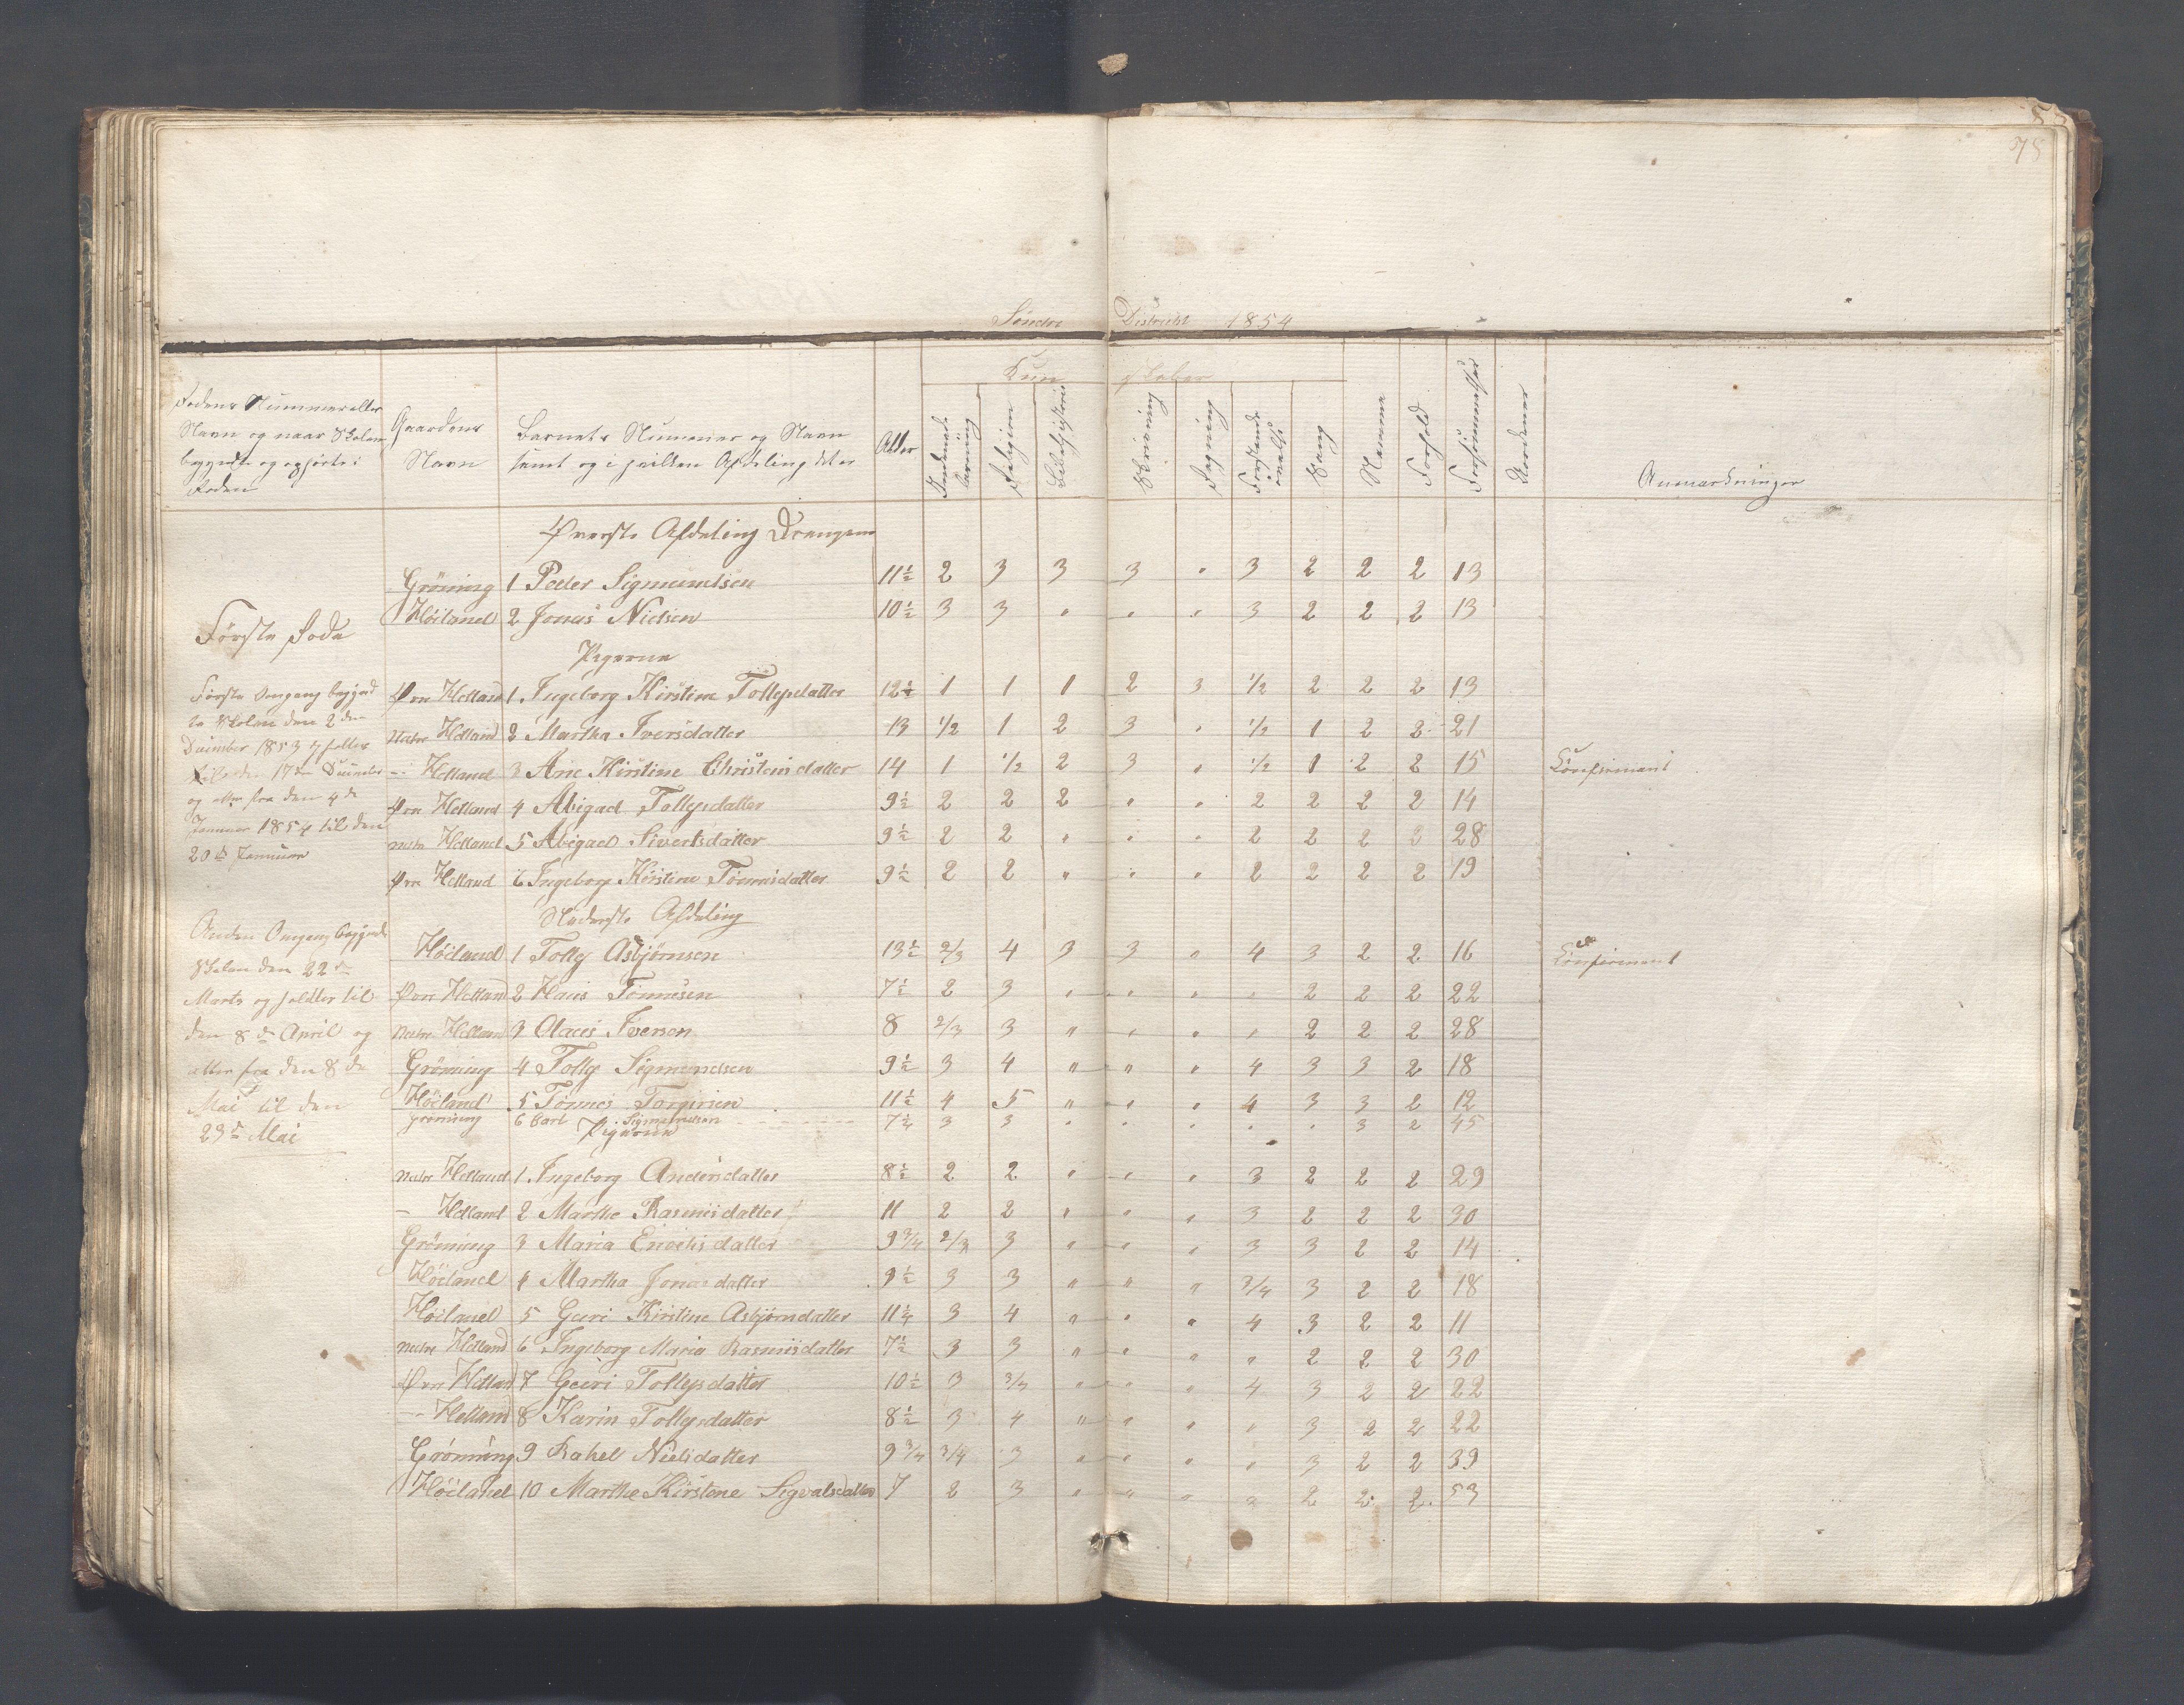 78
Söndre District 1854
Rodens Nummer eller Navn og naar Skolen begyndte og ophørte i Roden
Gaardens Navn
Barnets Nummer og Navn samt og i hvilken Afdeling det er
Alder
Kundskaber
Indenads Læsning
Religion
Bibelhistorie
Skrivning
Regning
Forstands övelse
Sang
Nemme
Forhold
Forsömmelser
Anmærkninger
Øverste Afdeling Drengene
Gröning 1 Peder Sigmundsen 11½ 2 3 3 3 " 3 2 2 2 13
Höiland 2 Jonas Nielsen 10½ 3 3 " " " 3 2 2 2 13
Første Rode
Pigerne
Øvre Helland 1 Ingeborg Kirstine Tollepsdatter 12¼ 1 1 1 2 3 1/2 2 2 2 13
Nedre Helland 2 Martha Iversdatter 13 1/2 1 2 3 " 1/2 1 2 2 21
– Helland 3 Ane Kirstine Christensdatter 14 1 1/2 2 3 " 1/2 1 2 2 15 Confirmant
Øvre Helland 4 Abigael Tollepsdatter 9½ 2 2 2 " " 2 2 2 2 14
Nedre Helland 5 Abigael Sivertsdatter 9½ 2 2 " " " 2 2 2 2 28
Øvre Helland 6 Ingeborg Kirstine Tönnisdatter 9½ 2 2 " " " 2 2 2 2 19
Første Omgang begynd
te Skolen den 2den
December 1853 holtes
til den 17de December
og atter fra den 4de
Januar 1854 til den
20de Januar
Nederste Afdeling
Höiland 1 Tolleg Asbjörnsen 13½ 2/3 4 3 3 " 4 3 2 2 16 Confirmant
Øvre Helland 2 Hans Tönnesen 7½ 2 3 " " " " 2 2 2 22
Nedre Helland 3 Olaus Iversen 8 2/3 3 " " " " 2 2 2 28
Gröning 4 Tolleg Sigmundsen 9½ 3 4 " " " 4 3 3 2 18
Höiland 5 Tönnes Torgirsen 11½ 4 5 " " " 4 3 3 2 12
Gröning 6 Carl Sigmundsen 7½ 3 3 " " " " " 3 2 45
Anden Omgang begyndte
Skolen den 22de
Marts og holdtes til
den 8de April og
atter fra den 8de
Mai til den
29de Mai
Pigerne
Nedre Helland 1 Ingeborg Andersdatter 8½ 2 2 " " " 3 2 2 2 29
– Helland 2 Marthe Rasmusdatter 11 2 2 " " " 3 2 2 2 30
Gröning 3 Maria Enochsdatter 9¾ 2/3 3 " " " 3 3 2 2 14
Höiland 4 Martha Jonasdatter 9½ 3 3 " " " 3/4 3 2 2 18
Höiland 5 Guri Kirstine Asbjörnsdatter 11¼ 3 4 " " " 4 3 2 2 11
Nedre Helland 6 Ingeborg Maria Rasmusdatter 7½ 3 3 " " " " 2 2 2 30
Øvre Helland 7 Guri Tollepsdatter 10½ 3 3/4 " " " 4 3 2 2 22
– Helland 8 Karin Tollepsdatter 8½ 3 4 " " " " 3 2 2 22
Grönning 9 Rahel Nielsdatter 9¾ 3/4 3 " " " " 3 2 2 39
Höiland 10 Marthe Kirstene Sigvalsdatter 7 2 3 " " " " 2 2 2 53